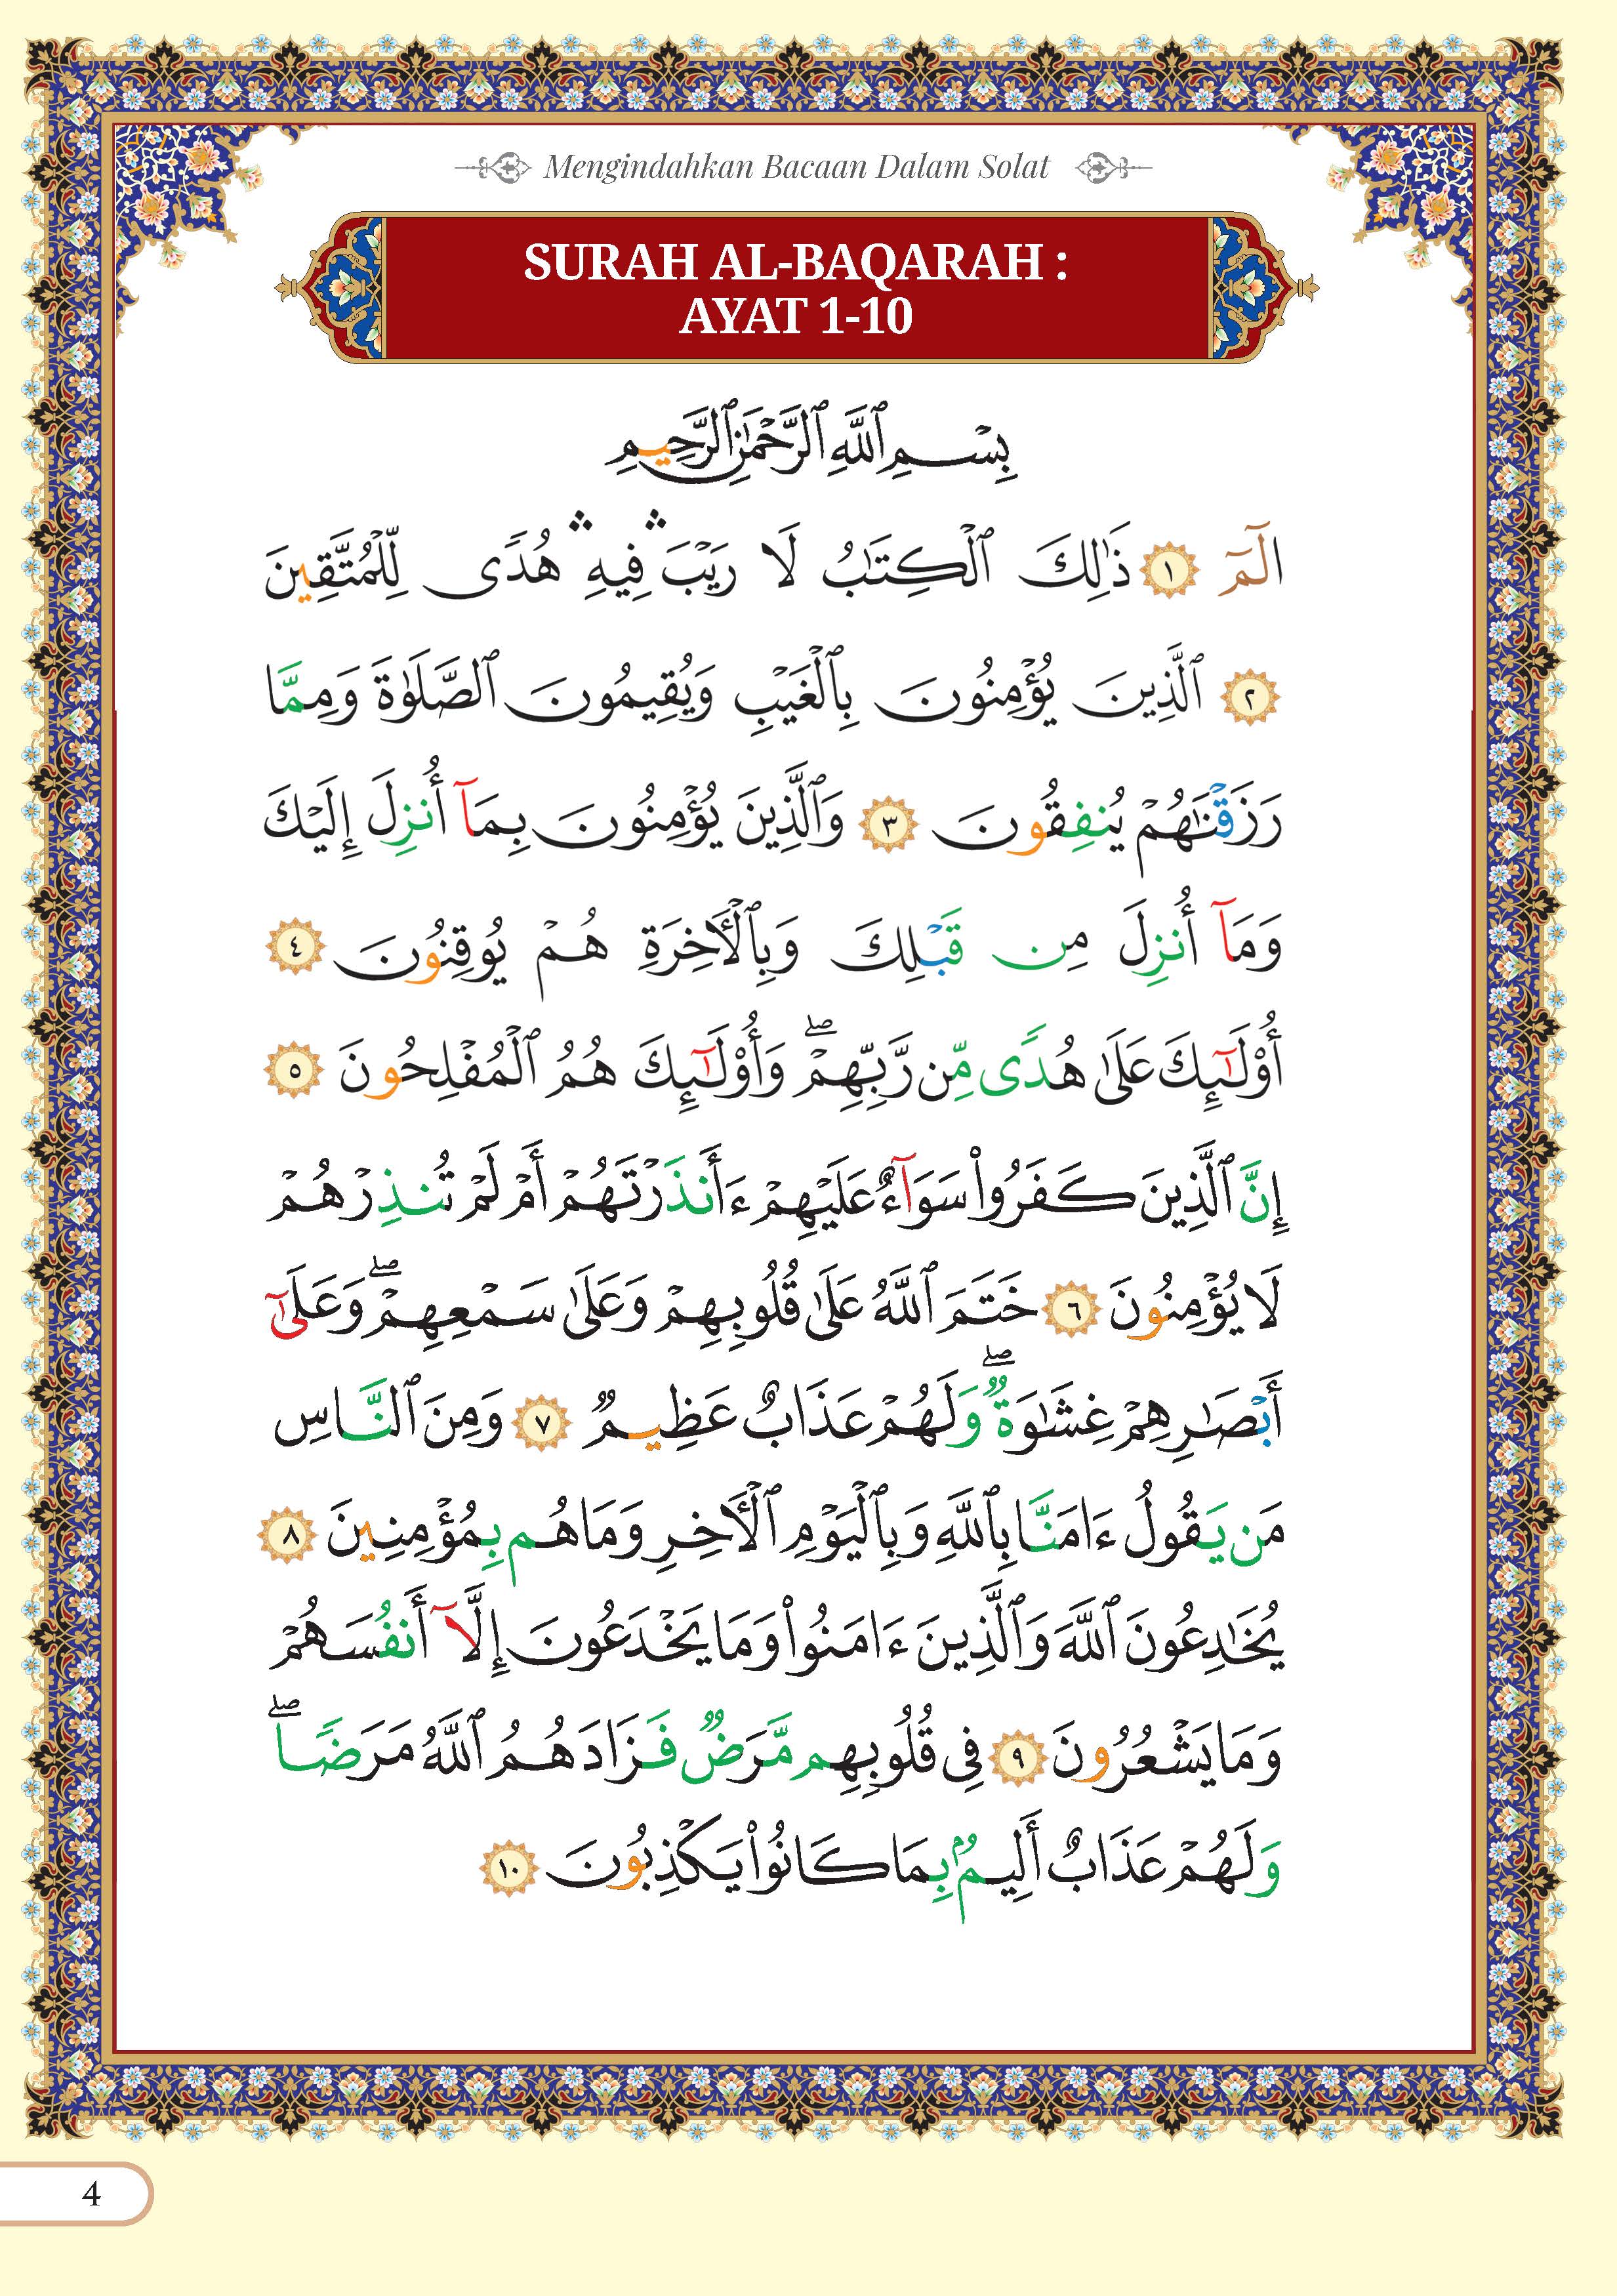 Mengindahkan Bacaan Dalam Solat
SURAH AL-BAQARAH :
AYAT 1-10
بِسْمِ ٱللَّهِ ٱلرَّحْمَٰنِ ٱلرَّحِيمِ
الٓمٓ ١ ذَٰلِكَ ٱلْكِتَٰبُ لَا رَيْبَ ۛ فِيهِ ۛ هُدًى لِّلْمُتَّقِينَ
٢ ٱلَّذِينَ يُؤْمِنُونَ بِٱلْغَيْبِ وَيُقِيمُونَ ٱلصَّلَوٰةَ وَمِمَّا
رَزَقْنَٰهُمْ يُنفِقُونَ ٣ وَٱلَّذِينَ يُؤْمِنُونَ بِمَآ أُنزِلَ إِلَيْكَ
وَمَآ أُنزِلَ مِن قَبْلِكَ وَبِٱلْأَخِرَةِ هُمْ يُوقِنُونَ ٤
أُوْلَٰٓئِكَ عَلَىٰ هُدًى مِّن رَّبِّهِمْ ۖ وَأُوْلَٰٓئِكَ هُمُ ٱلْمُفْلِحُونَ ٥
إِنَّ ٱلَّذِينَ كَفَرُوا۟ سَوَآءٌ عَلَيْهِمْ ءَأَنذَرْتَهُمْ أَمْ لَمْ تُنذِرْهُمْ
لَا يُؤْمِنُونَ ٦ خَتَمَ ٱللَّهُ عَلَىٰ قُلُوبِهِمْ وَعَلَىٰ سَمْعِهِمْ ۖ وَعَلَىٰٓ
أَبْصَٰرِهِمْ غِشَٰوَةٌ ۖ وَلَهُمْ عَذَابٌ عَظِيمٌ ٧ وَمِنَ ٱلنَّاسِ
مَن يَقُولُ ءَامَنَّا بِٱللَّهِ وَبِٱلْيَوْمِ ٱلْأَخِرِ وَمَا هُم بِمُؤْمِنِينَ ٨
يُخَٰدِعُونَ ٱللَّهَ وَٱلَّذِينَ ءَامَنُوا۟ وَمَا يَخْدَعُونَ إِلَّآ أَنفُسَهُمْ
وَمَا يَشْعُرُونَ ٩ فِى قُلُوبِهِم مَّرَضٌ فَزَادَهُمُ ٱللَّهُ مَرَضًا ۖ
وَلَهُمْ عَذَابٌ أَلِيمٌۢ بِمَا كَانُوا۟ يَكْذِبُونَ ١٠
4